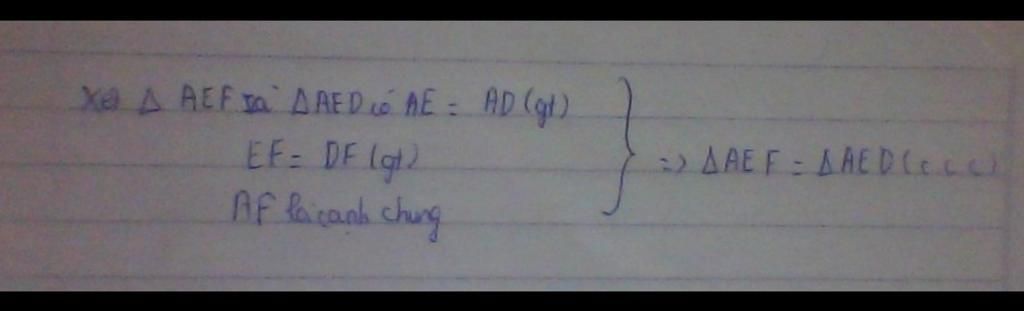 Xét Δ AEF và ΔAED có AE = AD (gt)
EF = DF (gt)
AF là cạnh chung
=> ΔAEF = ΔAED (c.c.c)